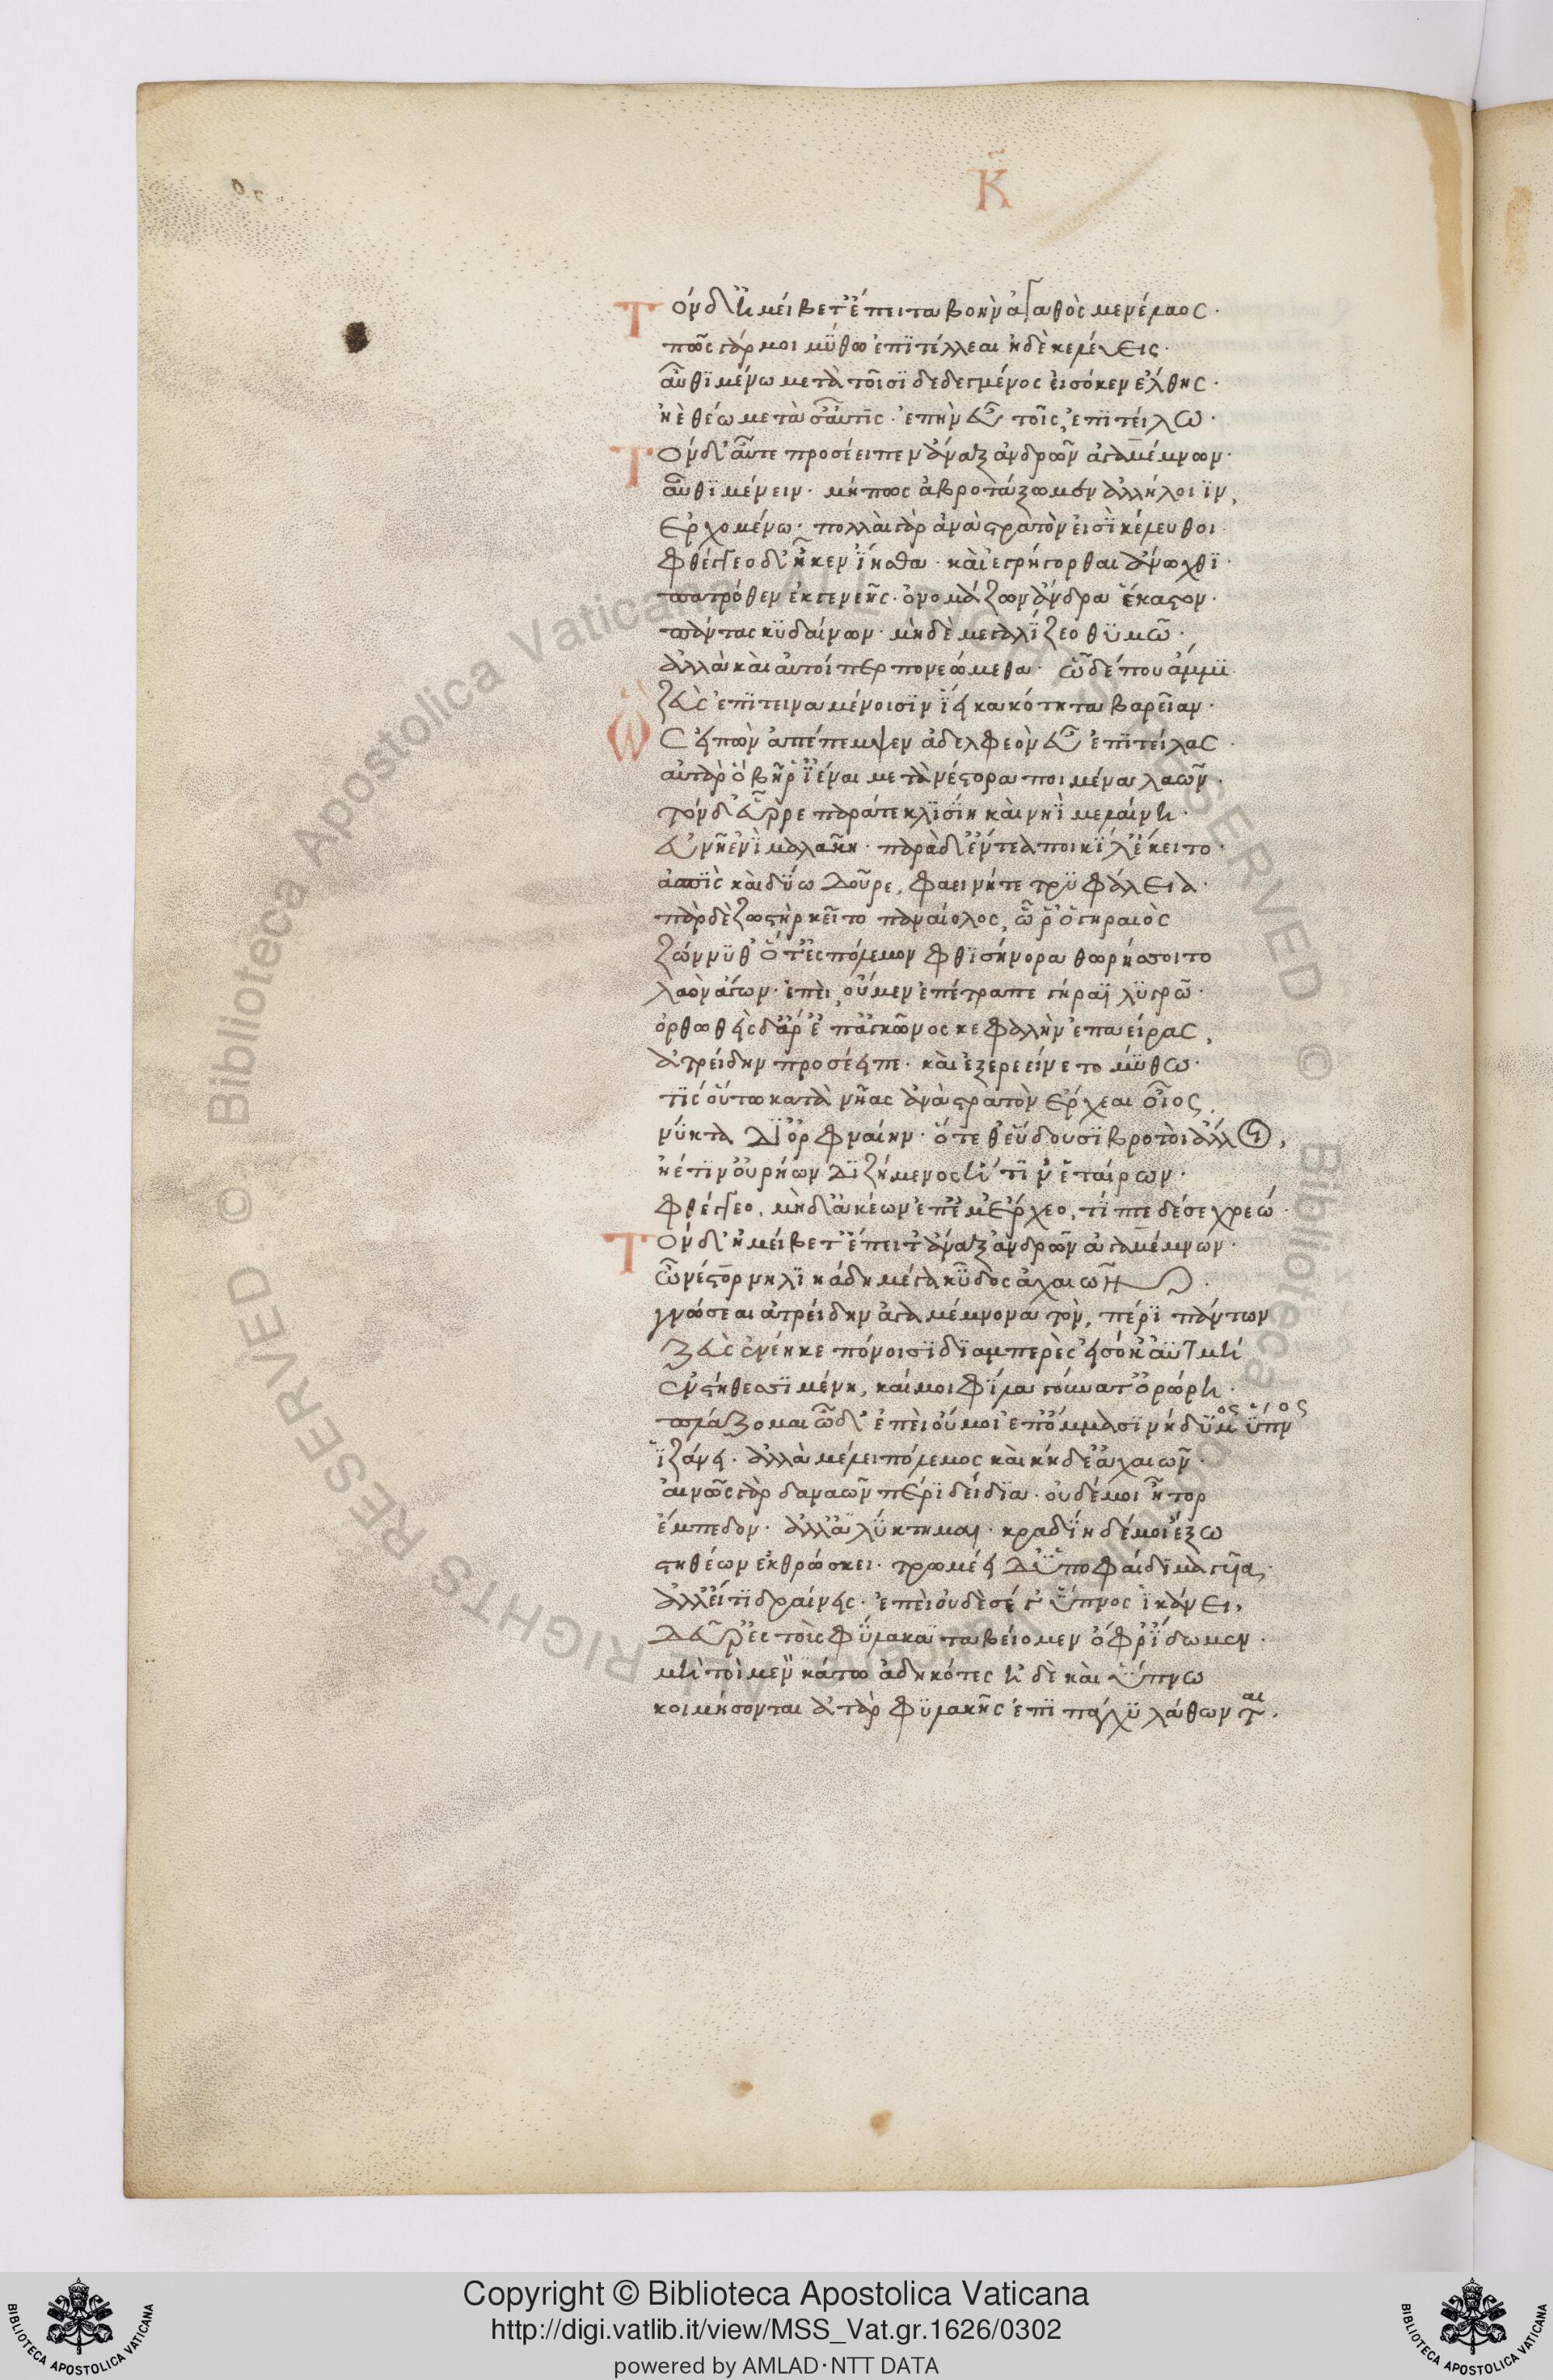 Κ̄
Τὸν δ' ἠμείβετ' ἔπειτα βοὴν ἀγαθὸς μενέλαος·
πῶς γάρ μοι μύθω ἐπϊτέλλεαι ἠδὲ κελεύεις·
αὖθϊ μένω μετὰ τοῖσϊ δεδεγμένος εἰσόκεν ἔλθης·
ἠὲ θέω μετὰ σ' αὖτις· ἐπὴν εὖ τοῖς ἐπϊτείλω·
Τὸν δ' αὖτε προσέειπεν ἄναξ ἀνδρῶν ἀγαμέμνων·
αὖθϊ μένειν· μήπως ἀβροτάξωμεν ἀλλήλοιϊν,
ἐρχομένω· πολλαὶ γὰρ ἀνὰ στρατὸν εἰσὶ κέλευθοι·
φθέγγεο δ' ἧ κεν ἴησθα· καὶ ἐγρήγορθαι ἄνωχθϊ·
πατρόθεν ἐκ γενεῆς· ὀνομάζων ἄνδρα ἕκαστον·
πάντας κυδαίνων· μὴδὲ μεγαλίζεο θϋμῶ·
ἀλλὰ καὶ αὐτοί περ πονεώμεθα· ὧδέ που ἄμμϊ
ζεὺς ἐπϊ γειναμένοισϊν ἵει κακότητα βαρεῖαν·
Ὣς εἰπὼν ἀπέπεμψεν ἀδελφεὸν εὖ ἐπϊτείλας·
αὐτὰρ ὁ βῆ ῥ' ἰέναι μετὰ νέστορα ποιμένα λαῶν·
τὸν δ' εὗρε παρά τε κλϊσίη καὶ νηῒ μελαίνη·
εὐνῆ ἐνὶ μαλακῆ· παρὰ δ' ἔντεα ποικίλ' ἔκειτο·
ἀσπὶς καὶ δύω δοῦρε, φαεινή τε τρϋφάλεια·
πὰρ δὲ ζωστὴρ κεῖτο παναίολος, ὧ ῥ' ὁ γηραιὸς
ζώννυθ' ὅτ' ἐς πόλεμον φθισήνορα θωρήσσοιτο
λαὸν ἄγων· ἐπεὶ οὐ μὲν ἐπέτραπε γήραϊ λϋγρῶ·
ὀρθωθεὶς δ' ἄρ' ἐπ' ἀγκῶνος κεφαλὴν ἐπαείρας,
ἀτρείδην προσέειπε· καὶ ἐξερεείνετο μύθω·
τίς δ' οὕτω κατὰ νῆας ἀνὰ στρατὸν ἔρχεαι οἶος,
νύκτα δι' ὀρφναίην· ὅτε θ' εὕδουσϊ βροτοὶ ἄλλοι,
ἠέ τϊν' οὐρήων διζήμενος ἤ τϊν' ἑταίρων·
φθέγγεο, μὴδ' ἀκέων ἐπ' ἔμ' ἔρχεο, τίπτε δέ σε χρεώ·
Τὸν δ' ἠμείβετ' ἔπειτ' ἄναξ ἀνδρῶν ἀγαμέμνων·
ὦ νέστορ νηληϊάδη μέγα κῦδος ἀχαιῶν·
γνώσεαι ἀτρείδην ἀγαμέμνονα τὸν, πέρϊ πάντων
ζεὺς ἐνέηκε πόνοισϊ δϊαμπερὲς εἰσόκ' ἀϋτμὴ
ἐν στήθεσσϊ μένη, καί μοι φίλα γούνατ' ὀρώρη·
πλάζομαι ὧδ' ἐπεὶ οὔ μοι ἐπ' ὄμμασϊ νήδϋμος ὕπνος
ἱζάνει· ἀλλὰ μέλει πόλεμος καὶ κήδε' ἀχαιῶν·
αἰνῶς γὰρ δαναῶν πέρϊ δείδϊα· οὐδέ μοι ἦτορ
ἔμπεδον· ἀλλ' ἀλϋκτημαι· κραδίη δέ μοι ἔξω
στηθέων ἐκθρώσκει· τρομέει δ' ὑπὸ φαίδϊμα γυῖα·
ἀλλ' εἴ τϊ δραίνεις· ἐπεὶ οὐδὲ σέ γ' ὕπνος ἱκάνει,
δεῦρ' ἐς τοὺς φύλακας καταβείομεν ὄφρ' ἴδωμεν·
μὴ τοὶ μὲν καμάτω ἀδηκότες ἠδὲ καὶ ὕπνω
κοιμήσονται ἀτὰρ φϋλακῆς ἐπϊ πάγχϋ λάθωνται·
Copyright © Biblioteca Apostolica Vaticana
http://digi.vatlib.it/view/MSS_Vat.gr.1626/0302
powered by AMLAD·NTT DATA